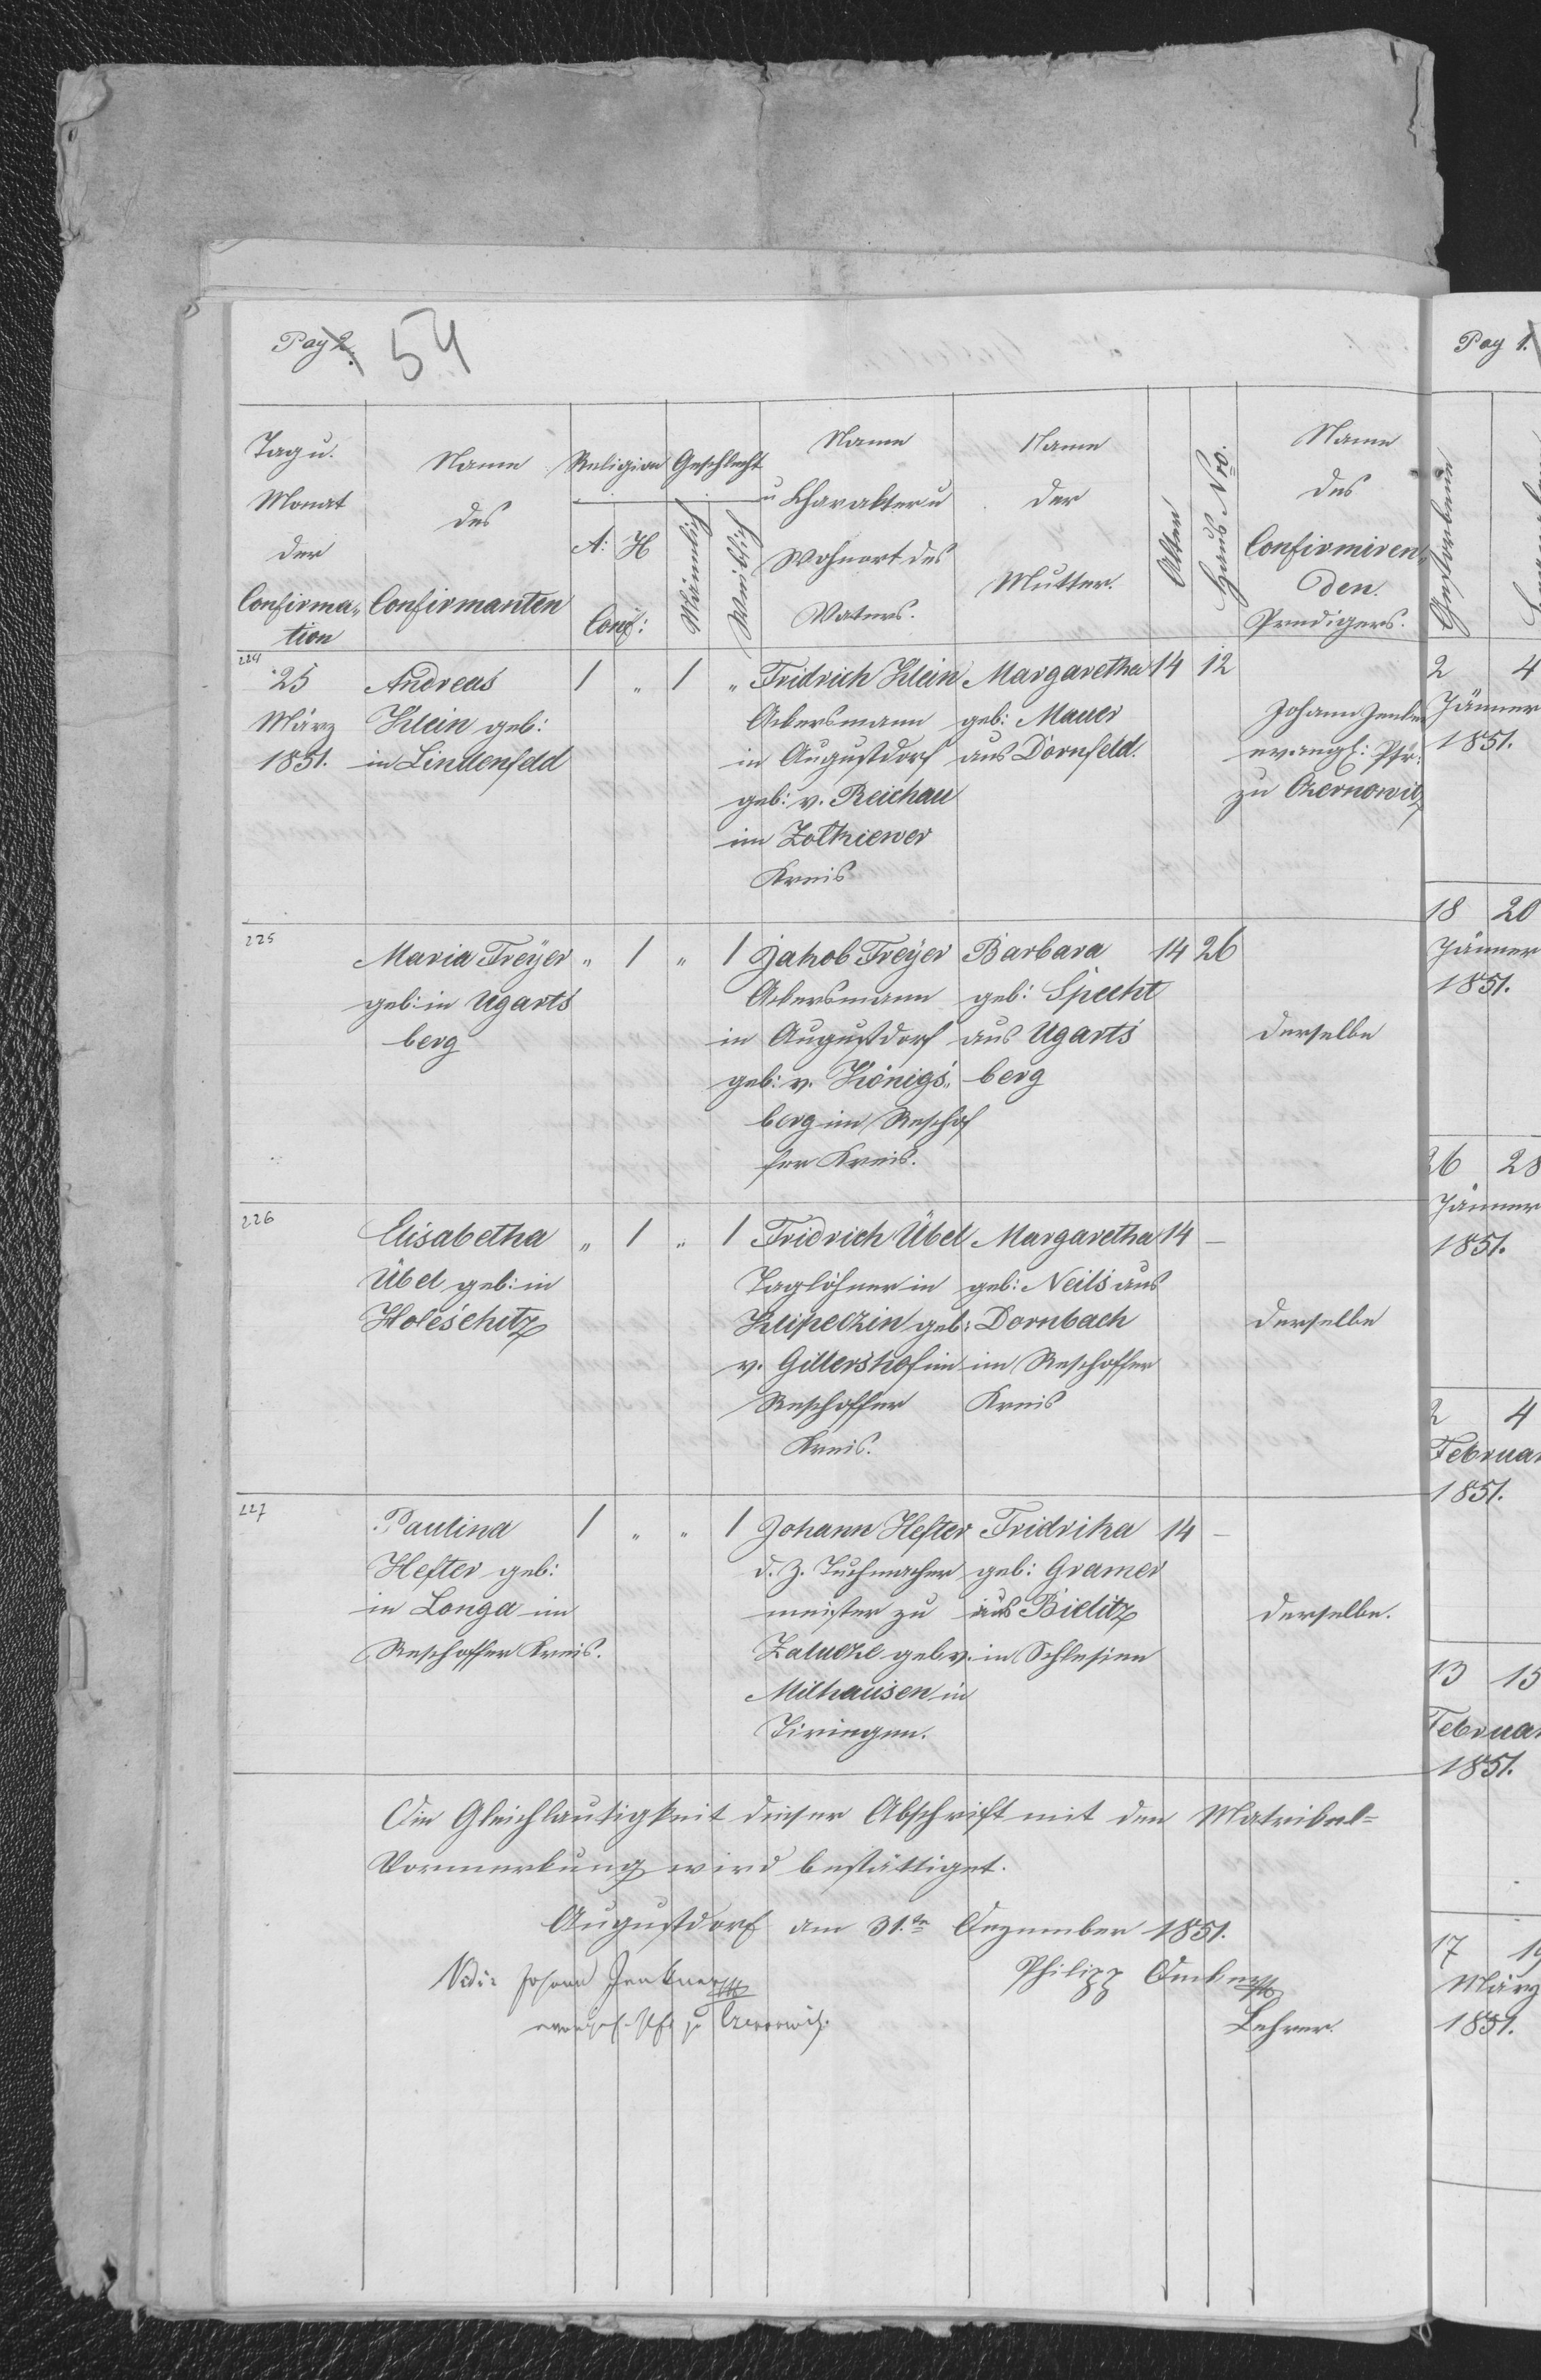 Pag 2. 54
Tag u. Monat der Confirma„tion
Name des Confirmanten
Religion
A: H
Conf:
Geschlecht
Männlich
Weiblich
Name u Charakter u Wohnort des Vaters.
Name der Mutter.
Alter
Haus Nro.
Name des Confirmiren„den. Predigers.
224
25 März 1851.
Andreas
Klein geb:
in Lindenfeld
1 „ 1 „
Fridrich Klein
Ackersmann
in Augustdorf
geb: v. Reichau
im Zolkiewer
Kreis
Margaretha
geb: Mauer
aus Dornfeld.
14 12
Johann Jenkn
evangl: Pfr:
zu Czernowitz
225
Maria Freÿer
geb: in Ugarts
berg
„ 1 „ 1
Jakob Freÿer
Ackersmann
in Augustdorf
geb: v. Königs„
berg im Reschof
fer Kreis.
Barbara
geb: Specht
aus Ugarts
berg
14 26
derselbe
226
Elisabetha
Übel geb: in
Holeschitz
„ 1 „ 1
Fridrich Übel
Taglöhner in
Klipeczin geb:
v. Gillershof im
Reschoffer
Kreis.
Margaretha
geb: Neils aus
Dornbach
im Reschoffer
Kreis
14 –
derselbe
227
Paulina
Hefter geb:
in Longa im
Reschoffer Kreis.
1 „ „ 1
Johann Hefter
d. Z. Tuchmacher
meister zu
Zalucze geb v.
Milhausen in
Tiringen.
Fridrika
geb: Gramer
aus Bielitz
in Schlesien
14 –
derselbe.
Die Gleichlautigkeit dieser Abschrift mit den Matrikel=
Vormerkung wird bestättiget.
Augustdorf am 31.te Dezember 1851.
Vidi: Johann Jenkner
evangel. Pfr zu Czernowitz.
Philipp
Lehrer.
Pag 1.
Gestorbene
2 4
Jänner
1851.
18 20
Jänner
1851.
26 28
Jänner
1851.
2 4
Februar
1851.
13 15
Februar
1851.
17 19
März
1851.